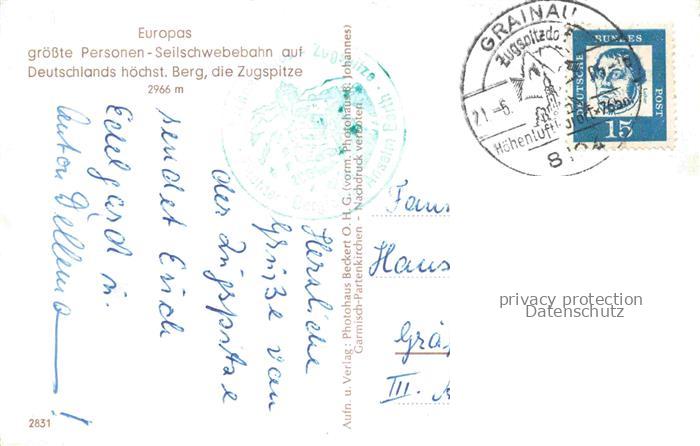 Europas
größte Personen-Seilschwebebahn auf
Deutschlands höchst. Berg, die Zugspitze
2966 m
Herzliche
Grüße von
der Zugspitze
sendet Euch
Edelgard u.
Anton
Aufn. u. Verlag: Photohaus Beckert O.H.G. (vorm. Photohaus B. Johannes)
Garmisch-Partenkirchen - Nachdruck verboten
Zugspitze
GRAINAU
Zugspitzdorf
21.-6.
Höhenluft
DEUTSCHE
BUNDES
POST
Luther
15
Fam
Haus
Grä
III.
privacy protection
Datenschutz
2831